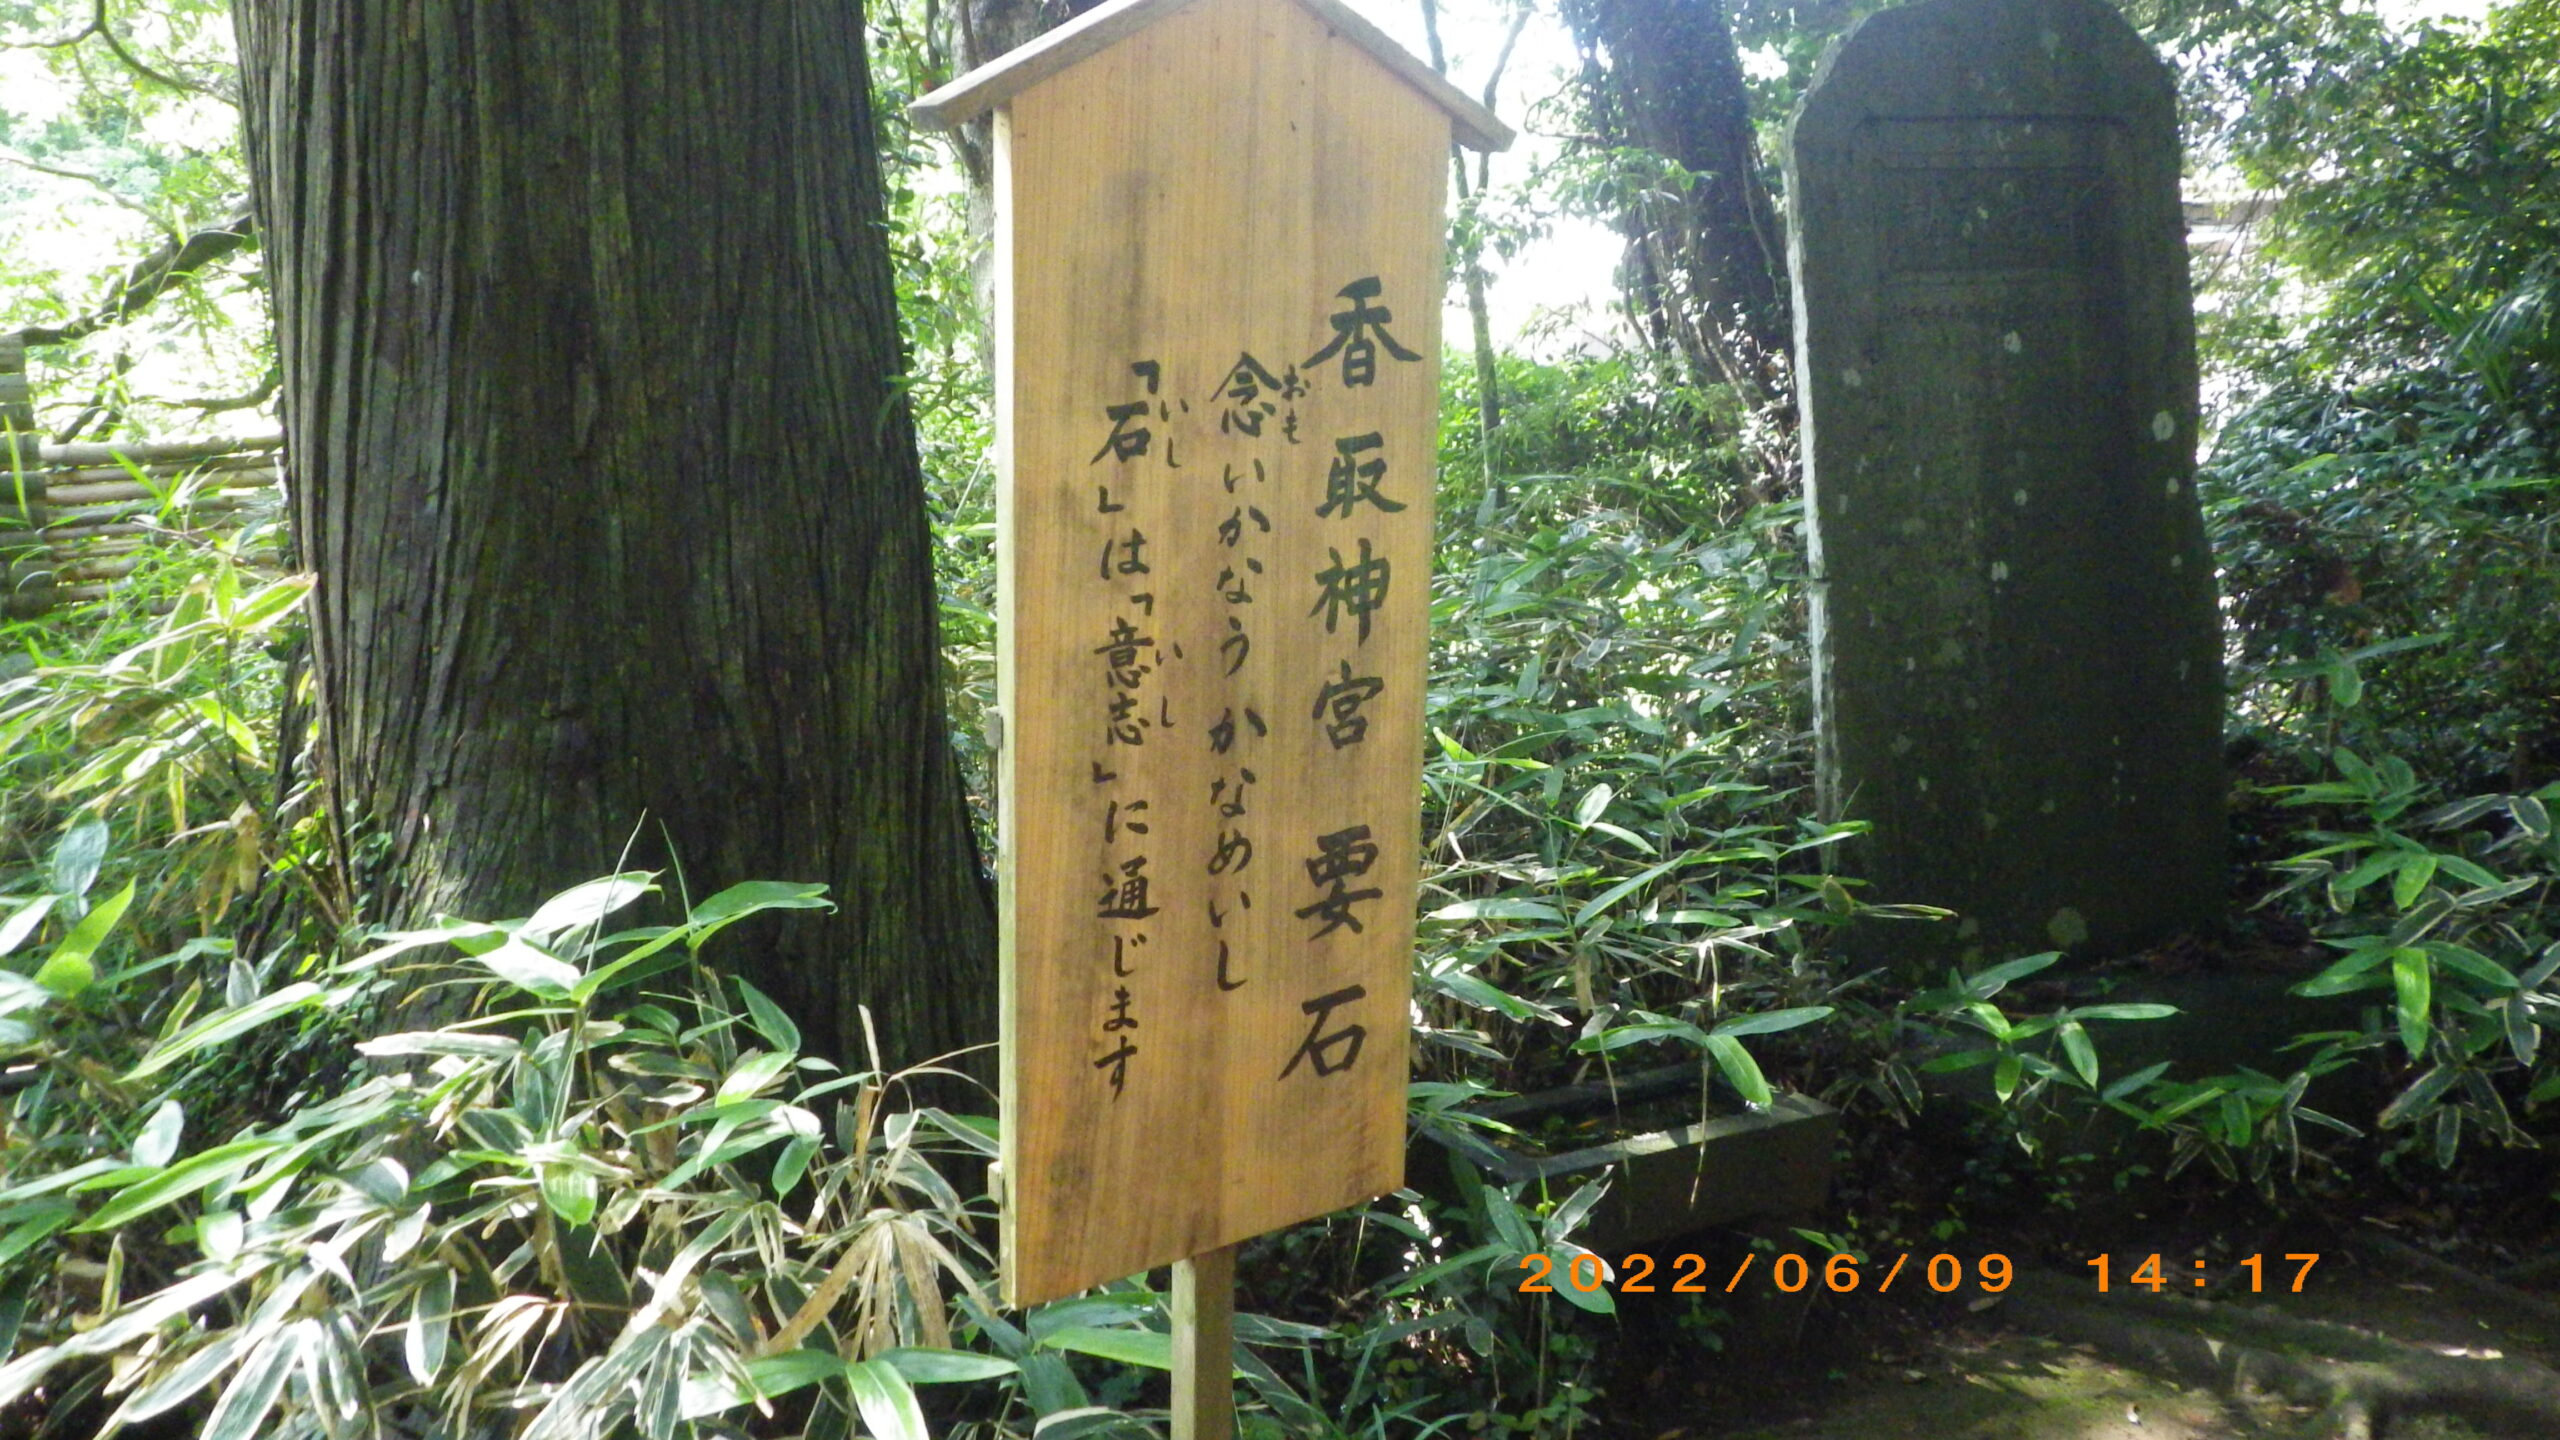 香取神宮 要石
念いかなう かなめいし
おも
「石」は「意志」に通じます
いし
いし
2022/06/09 14:17